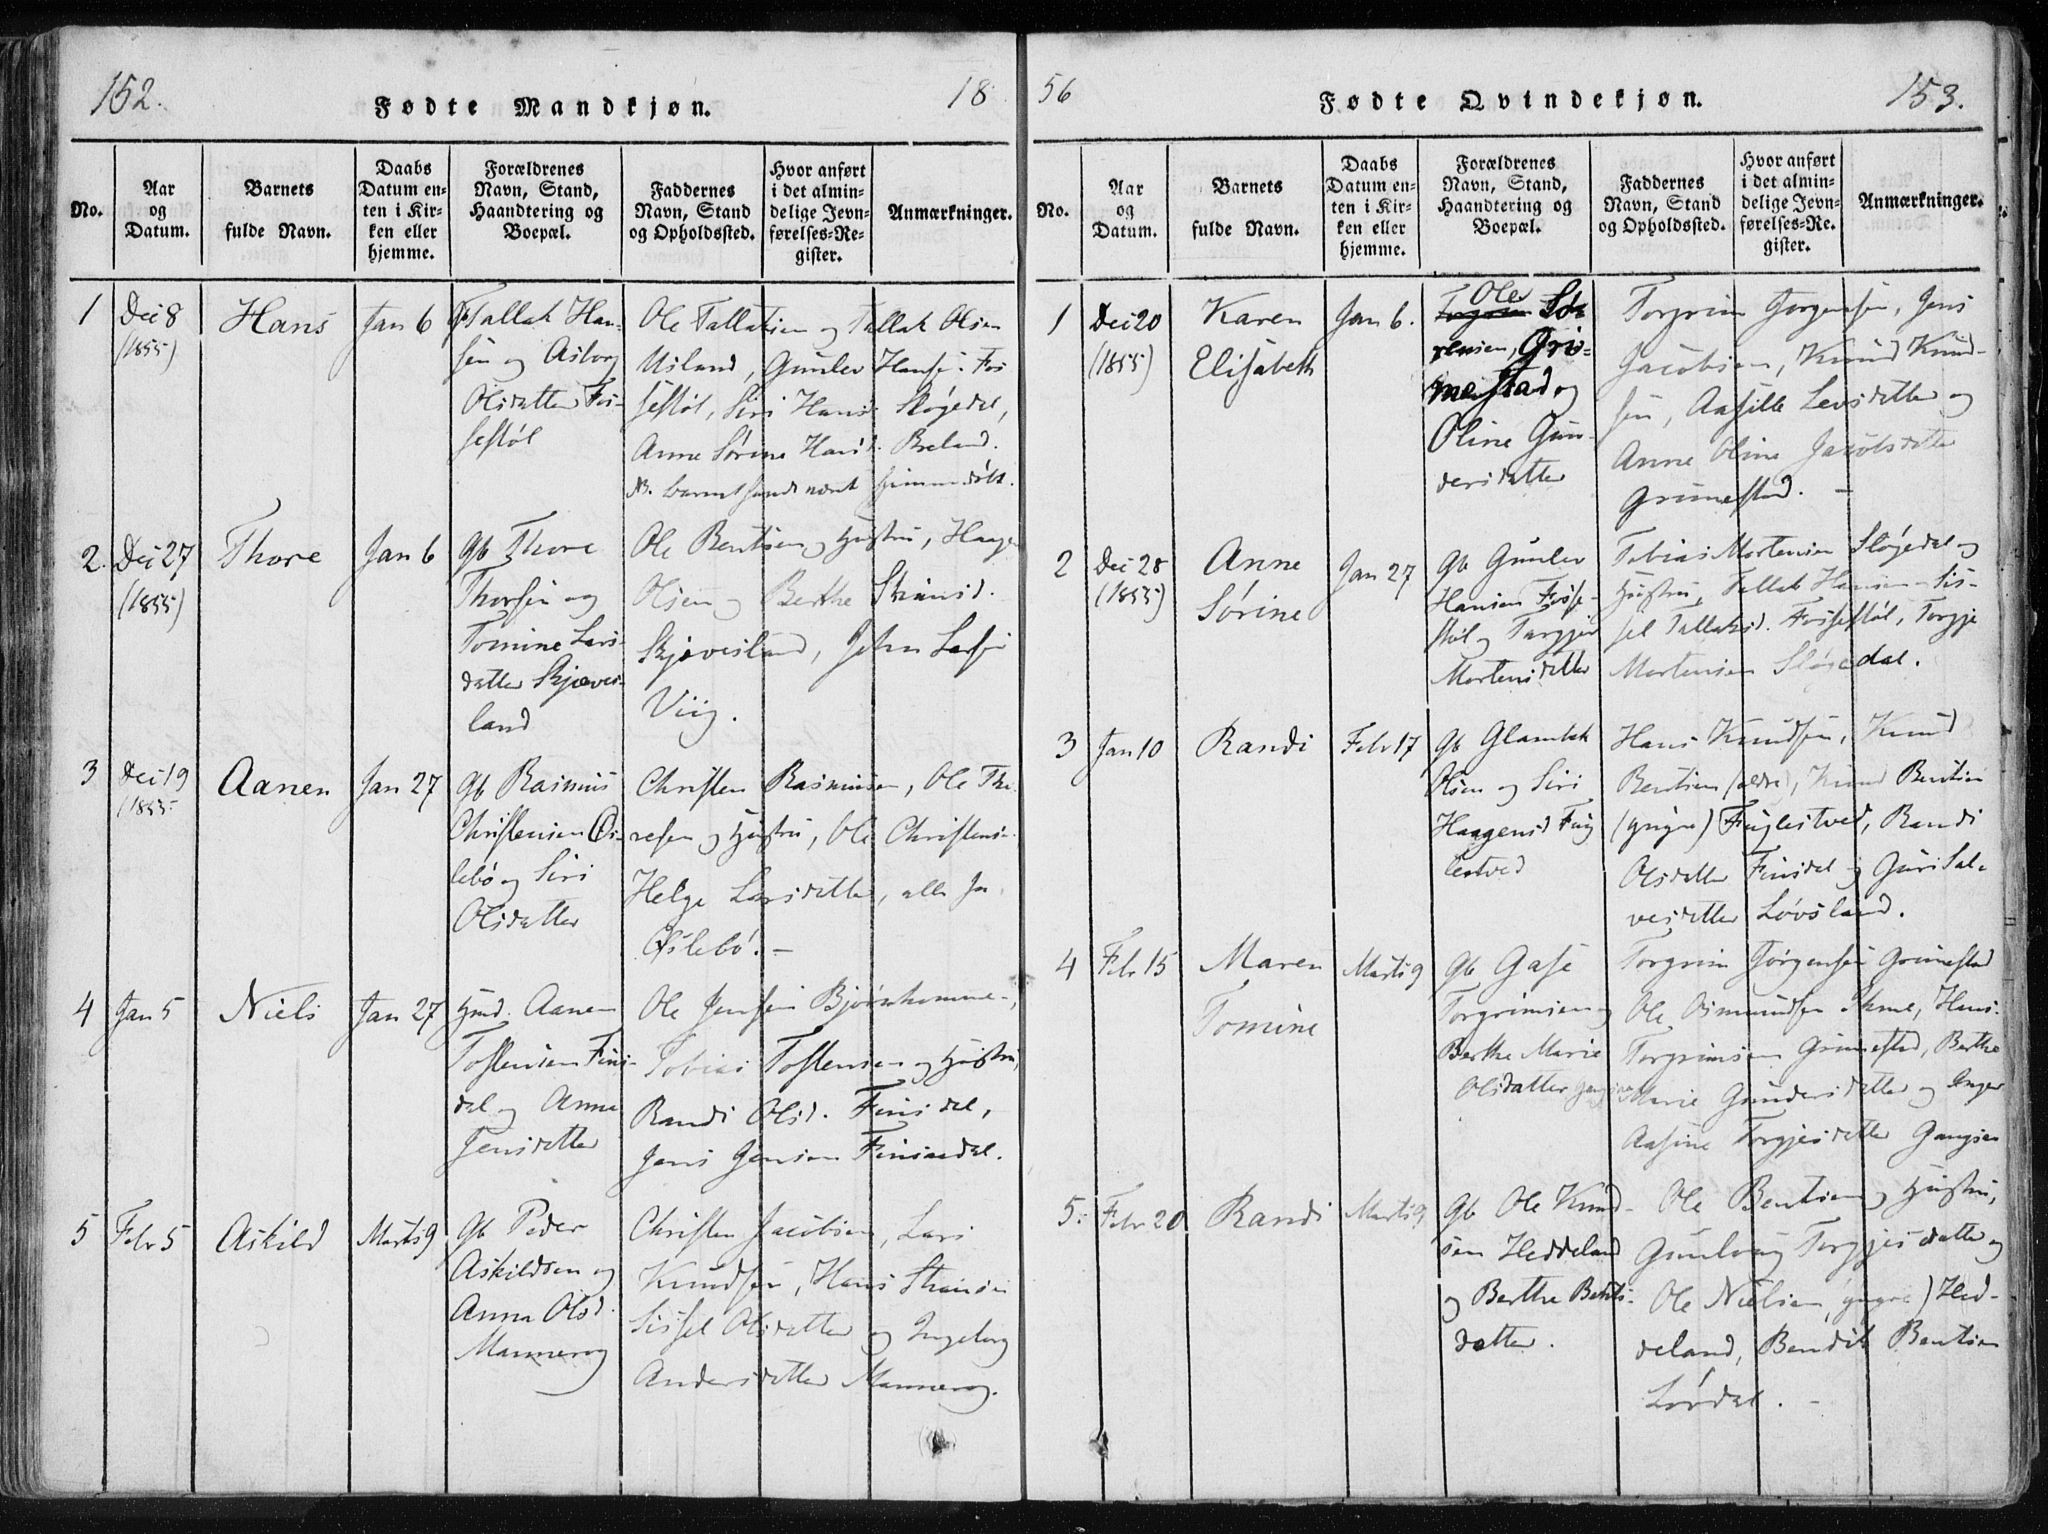 152.
Fødte Mandkjøn.
18
No.
Aar
og
Datum.
Barnets
fulde Navn.
Daabs
Datum en-
ten i Kir-
ken eller
hjemme.
Forældrenes
Navn, Stand,
Haandtering og
Boepæl.
Faddernes
Navn, Stand
og Opholdssted.
Hvor anført
i det almin-
delige Jevn-
førelses-Re-
gister.
Anmærkninger.
1
Dec 8
(1855)
Hans
Jan 6
Tallak Han-
sen og Asborg
Olsdatter Fos-
sestøl
Ole Tallaksen og Tallak Olsen
Usland, Gunlev Hanse. Fos
sestøl, Siri Hansd. Sløgedal,
Anne Sørine Hansd. Breland.
NB. barnet
2.
Dec 27
(1855)
Thore
Jan 6
Gb Thore
Thorsen og
Tomine Lars-
datter Skjæves-
land
Ole Bentsen og Hustru, Haagen
Olsen og Berthe
Skjævesland, John Larsen
Viig.
3
Dec 19
(1855
Aanen
Jan 27
Gb Rasmus
Christensen Øs-
lebø og Siri
Olsdatter
Christen Rasmussen, Ole Tho-
resen og Hustru, Ole Christens.
Helge Larsdatter, alle fra
Øslebø. -
4
Jan 5
Niels
Jan 27
Hmd. Aanen
Tostensen Fins-
dal og Anne
Jensdatter
Ole Jensen Bjørnkomme-,
Tobias Tostensen og Hustru,
Randi Olsd. Finsdal,
Jens Jensen Finsdal.
5
Febr 5
Askild
Marts 9
Gb Peder
Askildsen og
Anna Olsd.
Mannerog
Christen Jacobsen, Lars
Knudsen, Hans
Sissel Olsdatter og Ingeborg
Andersdatter Mannerog.
56
Fødte Qvindekjøn.
153.
No.
Aar
og
Datum.
Barnets
fulde Navn.
Daabs
Datum en-
ten i Kir-
ken eller
hjemme.
Forældrenes
Navn, Stand,
Haandtering og
Boepæl.
Faddernes
Navn, Stand
og Opholdssted.
Hvor anført
i det almin-
delige Jevn-
førelses-Re-
gister.
Anmærkninger.
1
Dec 20
(1855)
Karen
Elisabeth
Jan 6.
Ole
Torgrim Sør
rensen, Gri-
mestad og
Oline Gun-
dersdatter
Torgrim Jørgensen, Jens
Jacobsen, Knud Knud-
sen, Aasille Levsdatter og
Anne Oline Jacobsdatter
Grimestad. -
2
Dec 28
(1855)
Anne
Sørine
Jan 27
Gb Gunlev
Hansen Fosse-
støl og Torgjer
Mortensdatter
Tobias Mortensen Sløgedal og
Hustru, Tallak Hansen, Sis-
sel Tallaksd. Fossestøl, Torgje
Mortensen Sløgedal.
3
Jan 10
Randi
Febr 17
Gb Glambek
Olsen og Siri
Haagensd Fug
lestved
Hans Knudsen, Knud
Bentsen (ældre), Knud Bentsen
(yngre) Fuglestved, Randi
Olsdatter Finsdal og Guri Sal-
vesdatter Løvsland.
4
Febr 15
Maren
Tomine
Marts 9
Gb Gase
Torgrimsen og
Berthe Marie
Olsdatter
Torgrim Jørgensen Grimestad
Ole Osmundsen Hans
Torgrimsen Grimestad, Berthe
Marie Gundersdatter og Inger
Aasine Torgjesdatter
5.
Febr 20
Randi
Marts 9
Gb Ole Knud-
sen Heddeland
og Berthe Bents-
datter.
Ole Bentsen og Hustru,
Gunlaug Torgjesdatter og
Ole Nielsen (yngre) Hed-
deland, Bendik Bentsen
Lørdal. -